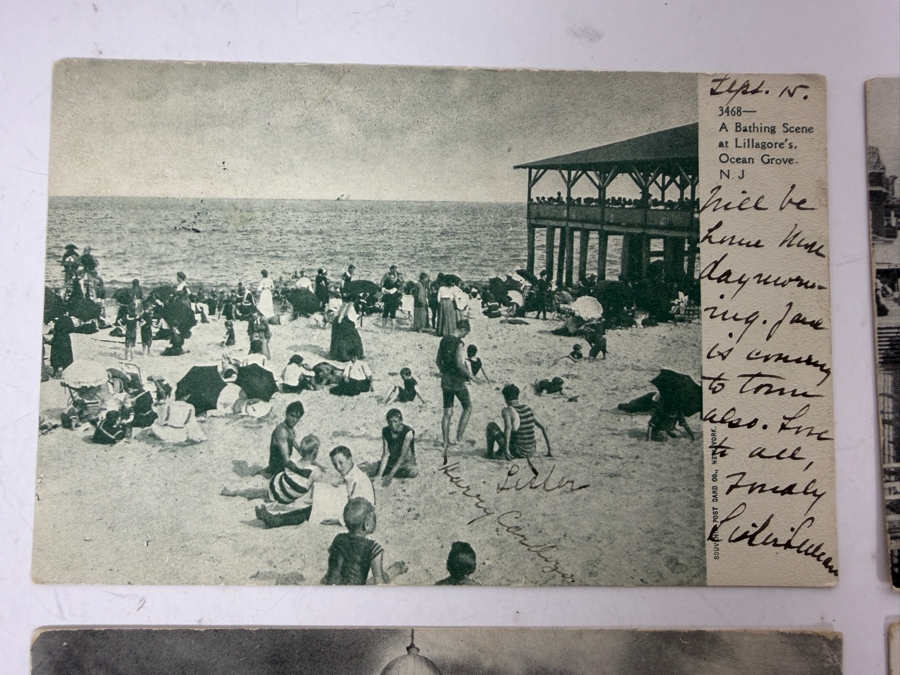 Sept. 15.
3468—
A Bathing Scene
at Lillagore's,
Ocean Grove.
N J
Will be
home
day morn-
ing. Jack
is coming
to town
also. Love
to all,
Fondly
Harry
SOUVENIR POST CARD CO., NEW YORK.